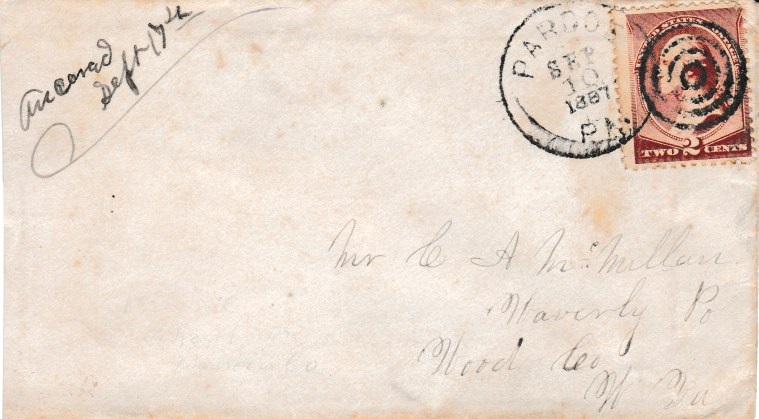 Ancerad
Sept 17th
PARDO
SEP
10
1887
PA
UNITED STATES
TWO 2 CENTS
Mr C A McMillan
Waverly Po
Wood Co
W Va